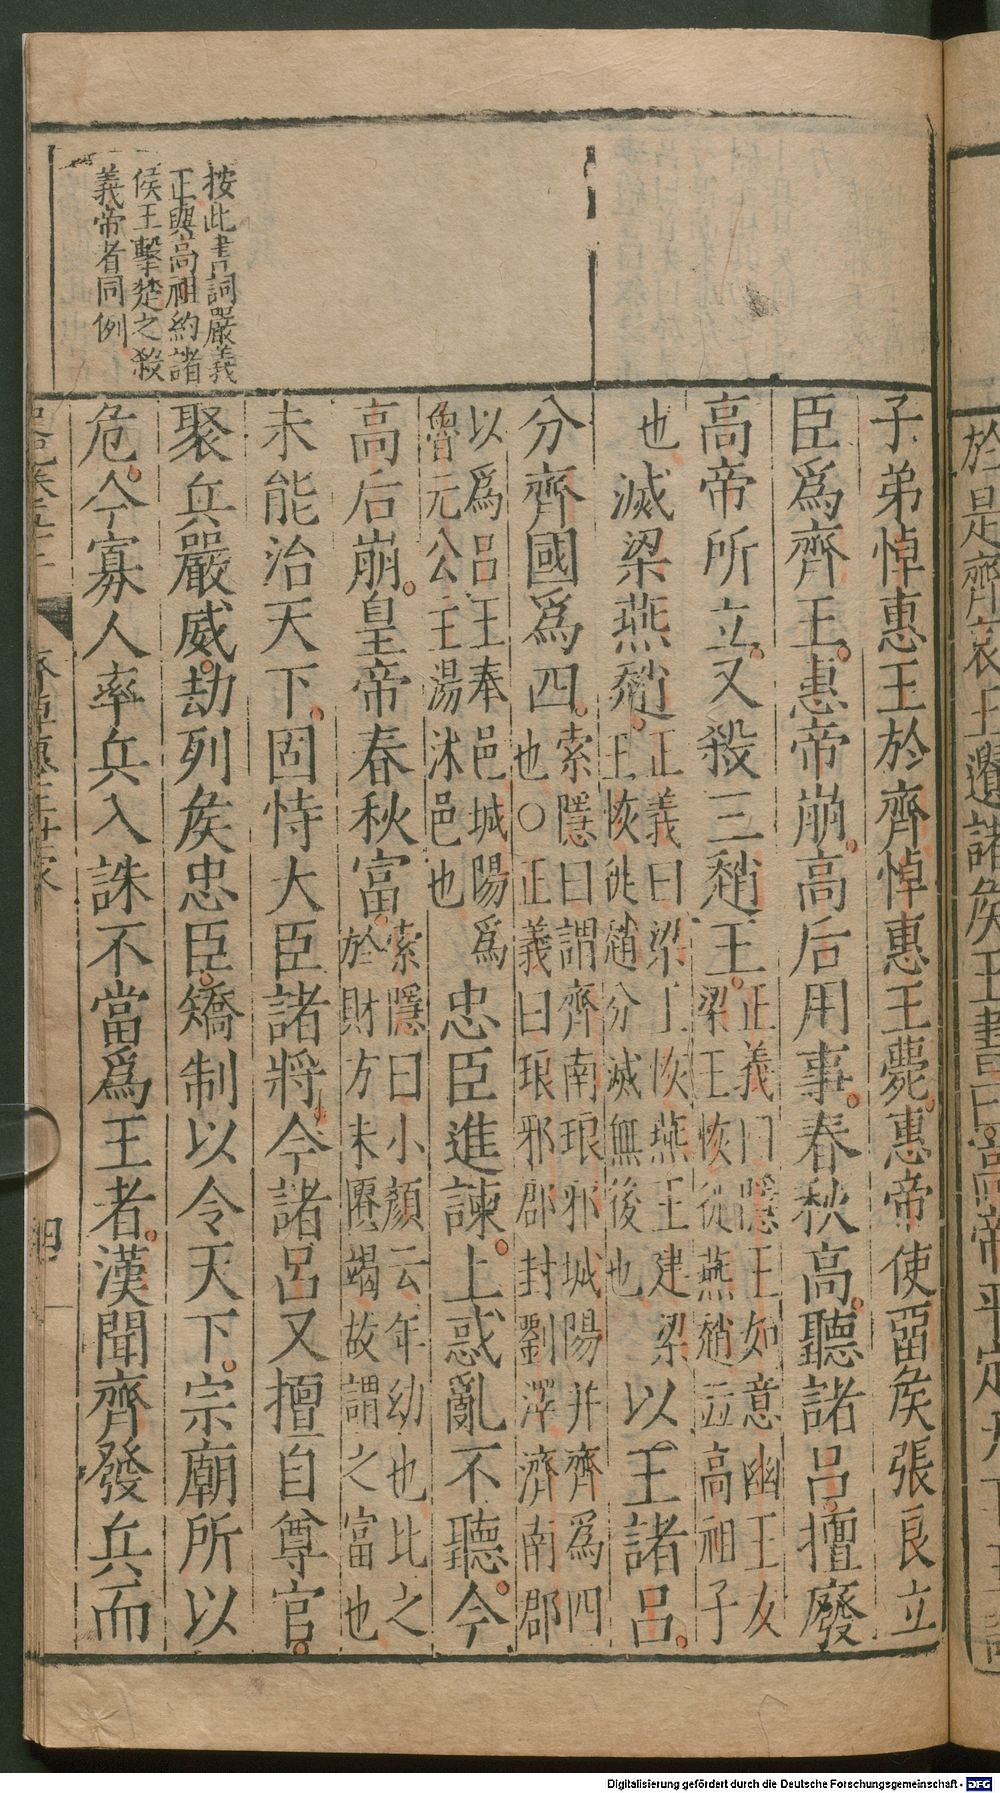 按此書詞嚴義
正與高祖約諸
侯王擊楚之殺
義帝者同例
子弟悼惠王於齊悼惠王薨惠帝使畱矦張良立
臣爲齊王惠帝崩高后用事春秋高聽諸呂擅廢
高帝所立又殺三趙王
正義曰隱王如意幽王友
梁王恢徙燕趙並高祖子
也滅梁燕趙
正義曰梁王恢燕王建梁
王恢徙趙分滅無後也
以王諸呂
分齊國爲四
索隱曰謂齊南琅邪城陽并齊爲四
也○正義曰琅邪郡封劉澤濟南郡
以爲呂王奉邑城陽爲
魯元公主湯沐邑也
忠臣進諫上惑亂不聽今
高后崩皇帝春秋富
索隱曰小顏云年幼也比之
於財方未匱竭故謂之富也
未能治天下固恃大臣諸將今諸呂又擅自尊官
聚兵嚴威劫列矦忠臣矯制以令天下宗廟所以
危今寡人率兵入誅不當爲王者漢聞齊發兵而
四
Digitalisierung gefördert durch die Deutsche Forschungsgemeinschaft - DFG